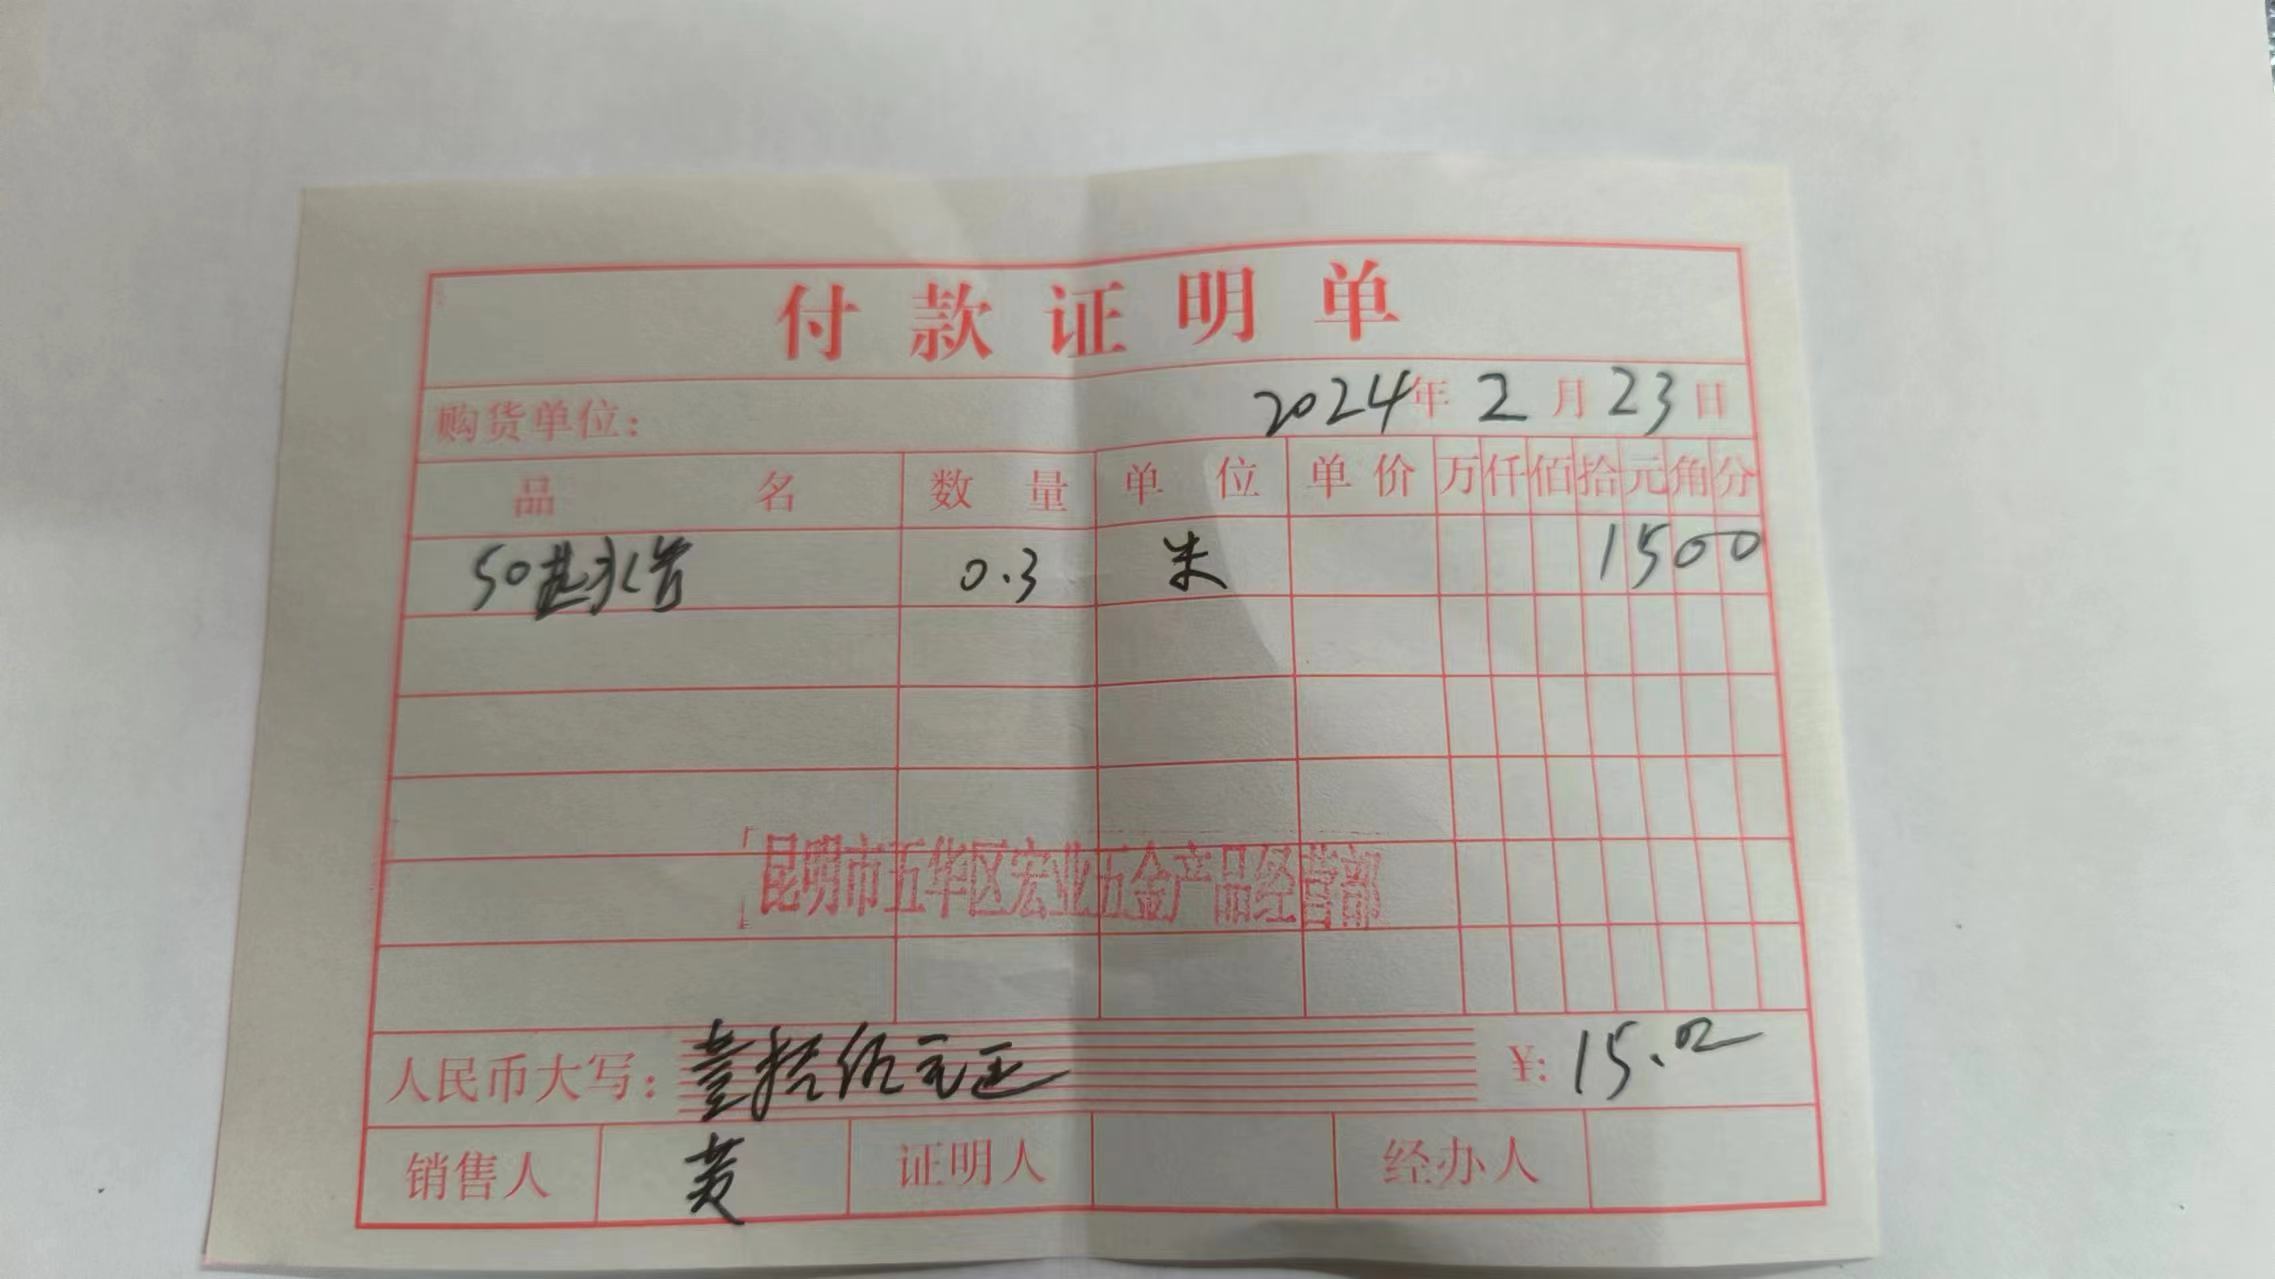 付款证明单
购货单位： 2024年2月23日
品名 数量 单位 单价 万 仟 佰 拾 元 角 分
50 水管 0.3 米 1500
昆明市五华区宏业五金产品经营部
人民币大写：壹拾伍元正 ¥: 15.00
销售人 黄 证明人 经办人